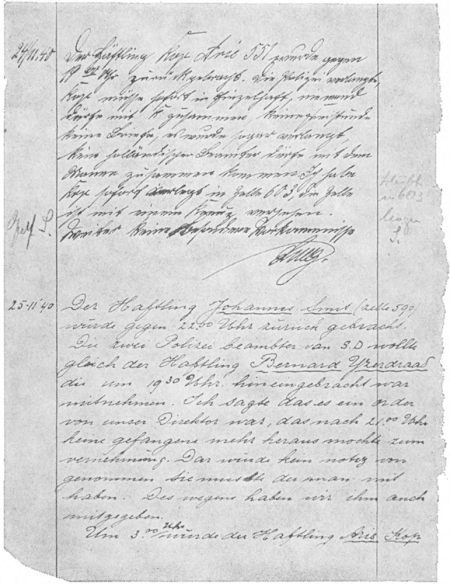 24/11.40 Der Häftling Kop Arie 551 wurde gegen
19 00 Uhr zurückgebracht. Die Polizei verlangte
Kop müsse sofort in Einzelhaft, niemand
dürfte mit K zusammen
keine Briefe, es wurde sogar verlangt
kein holländischer Beamter dürfe mit dem
zusammen kommen Ich habe
Kop sofort verlegt in Zelle 603, die Zelle
ist mit einem Kreuz versehen.
Weiter keine besondere Vorkommnisse
25-11-'40 Der Haftling Johannes Smit (zelle 590)
wurde gegen 22 00 Uhr zuruck gebracht.
Die zwei Polizei beambter van S.D wollte
gleich der Haftling Bernard Yzerdraad
die um 19 30 Uhr. hineingebracht war
mitnehmen. Ich sagte das es ein order
von unser Direktor war, das nach 21.00 Uhr
keine gefangene mehr heraus mochte zum
vernehmung. Dar wurde kein notiz von
genommen sie musste des man mit
haben. Des wegens haben wir ihm auch
mitgegeben.
Um 3.00 Uhr wurde der Haftling Arie Kop